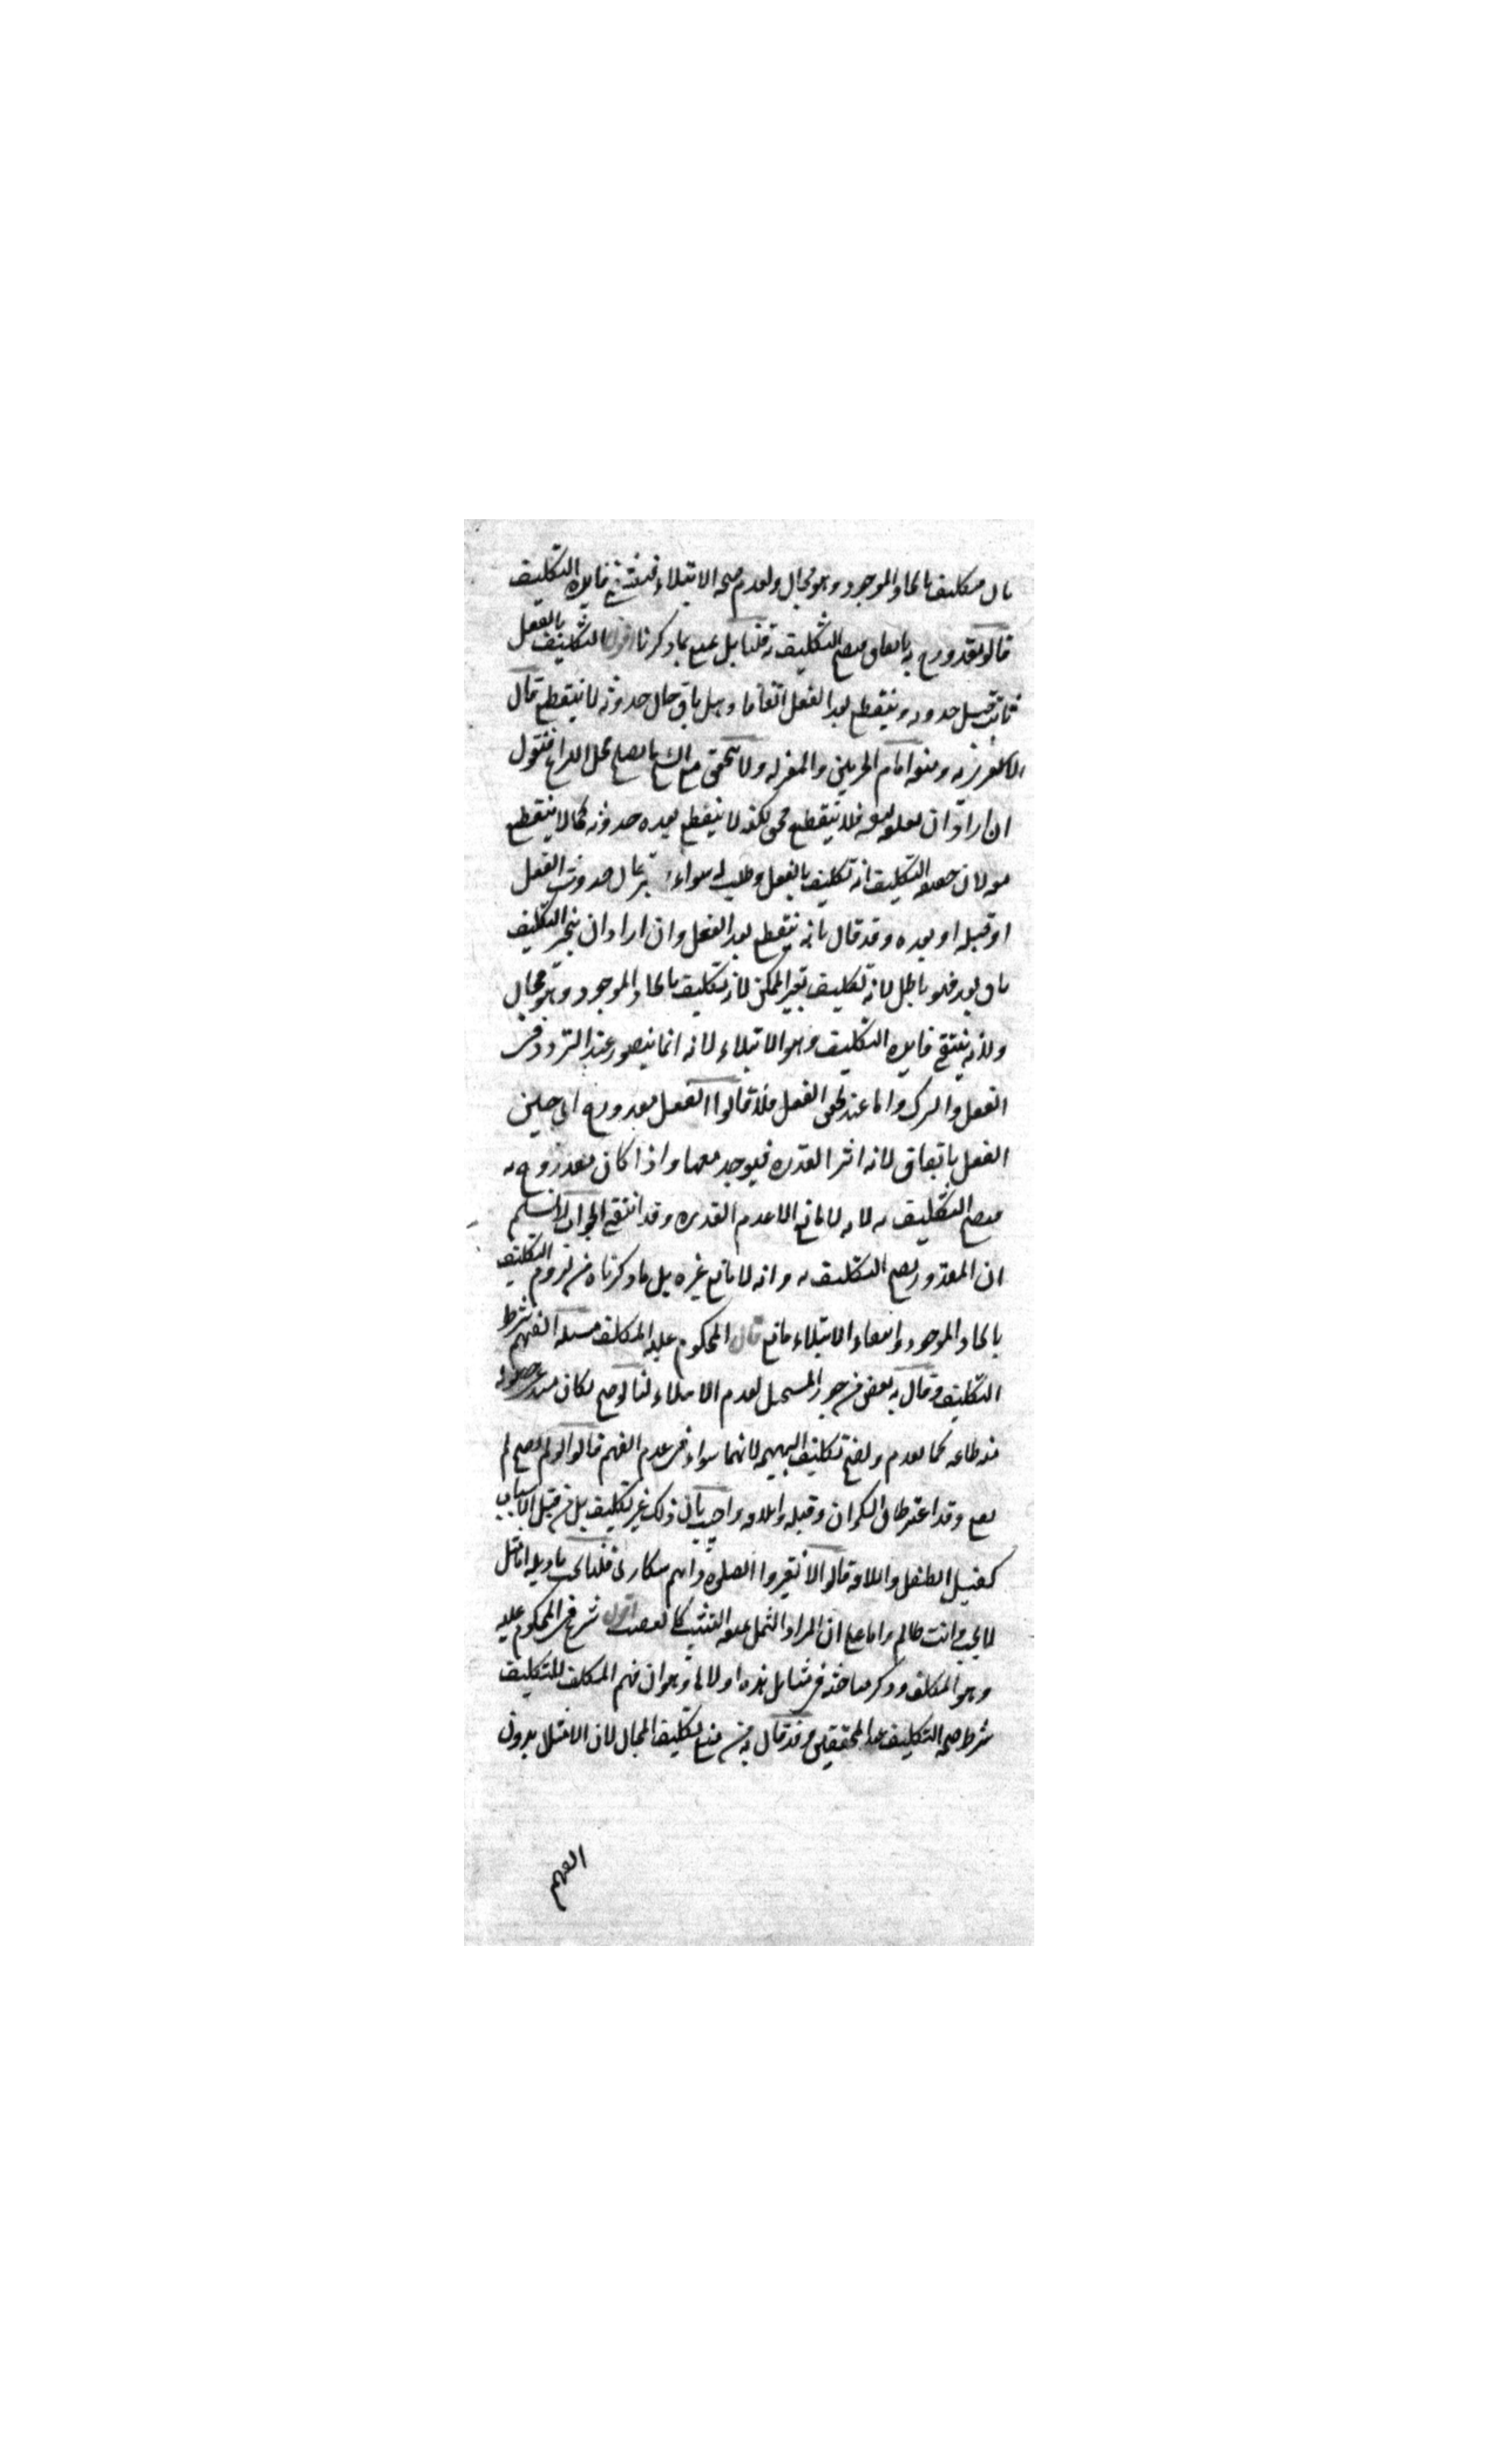 باق فتكليف بايجاد الموجود وهو محال ولعدم صحة الابتلاء فينتفي فايده التكليف
قالوا مقدور ح باتفاق فيصح التكليف به قلنا بل يمتنع بما ذكرنا اقول التكليف بالفعل
ثابت قبل حدوثه وينقطع بعد الفعل اتفاقا وهل باق حال حدوثه لا ينقطع قال
الاشعري به ومنعه امام الحرمين والمعتزله ولا يتحقق مع الشيخ ما يصلح محل النزاع فنقول
ان اراد ان تعلقه لنفسه فلا ينقطع فحق لكنه لا ينقطع بعده حدوثه كما لا ينقطع
معه لان حقيقة التكليف انه تكليف بالفعل وطلب له سواء حال حدوث الفعل
او قبله او بعده وقد قال بانه ينقطع بعد الفعل وان اراد ان تنجيز التكليف
باق بعد فهو باطل لانه تكليف بغير الممكن لانه تكليف بايجاد الموجود وهو محال
ولانه ينتفي فايده التكليف وهو الابتلاء لانه انما يتصور عند التردد في
الفعل والترك واما عند تحقق الفعل فلا قالوا الفعل مقدور ح اي حين
الفعل باتفاق لانه اثر القدره فيوجد معها واذا كان مقدورا ح
فيصح التكليف به لانه لا مانع الا عدم القدره وقد انتفي الجواب لا نسلم
ان المقدور يصح التكليف به وانه لا مانع غيره بل ما ذكرناه من لزوم التكليف
بايجاد الموجود وانتفاء الابتلاء مانع قال المحكوم عليه المكلف مسئله الفهم شرط
التكليف وقال به بعض من جوز المستحيل لعدم الابتلاء لنا لو صح لكان مستدعي حصوله
منه طاعه كما تقدم ولصح تكليف البهيمه لانهما سواء في عدم الفهم قالوا لو لم يصح لم
يقع وقد اعتبر طلاق السكران وقتله واتلافه واجيب بان ذلك غير تكليف بل من قبيل الاسباب
كقتل الطفل واتلافه قالوا لا تقربوا الصلوة وانتم سكاري قلنا يجب تاويله اما بمثل
لا تمت وانت ظالم واما علي ان المراد الثمل لمنعه التثبت كالغضب اقول شرع في المحكوم عليه
وهو المكلف وذكر مباحثه في مسائل هذه اولاها وهو ان فهم المكلف للتكليف
شرط صحه التكليف عند المحققين وقد قال به من منع تكليف المحال لان الامتثال بدون
الفهم